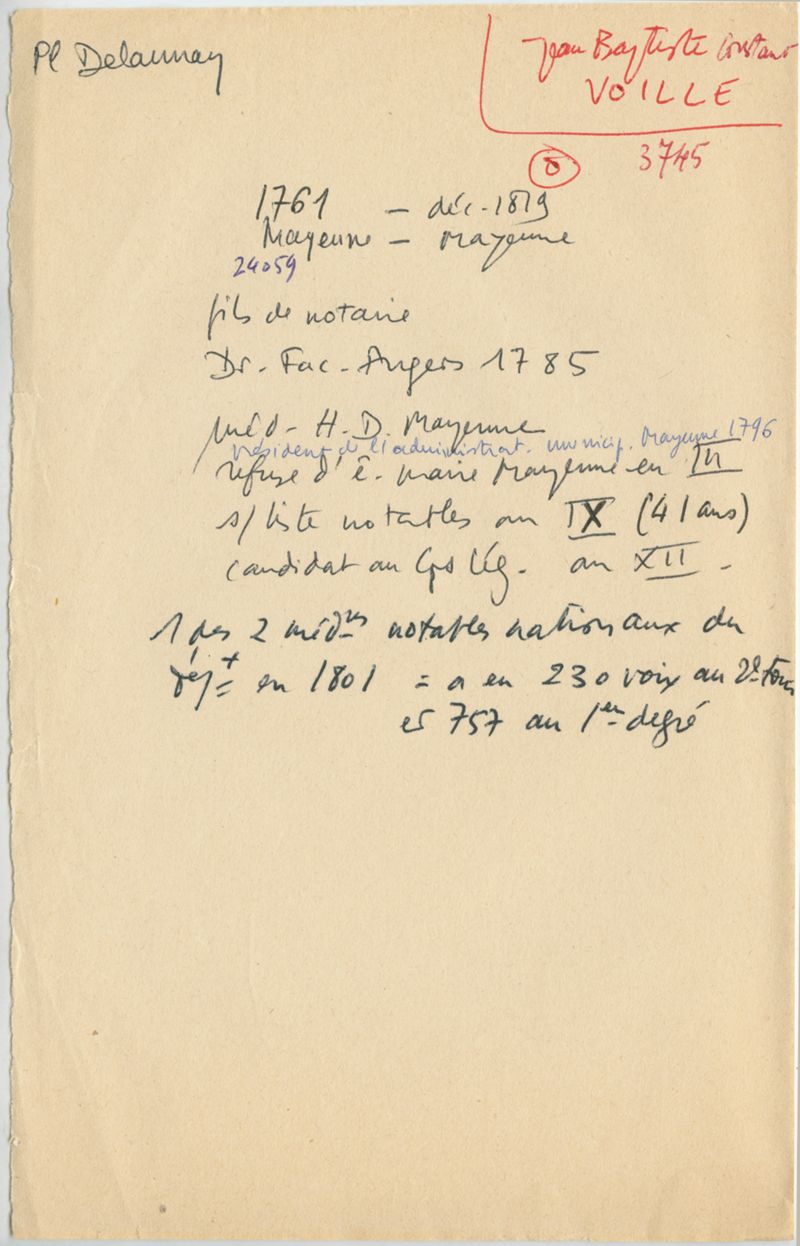 Pl Delaunay
Jean Baptiste Constant
VOILLE
3745
1761 - déc. 1819
Mayenne - Mayenne
24059
fils de notaire
Dr. Fac. Angers 1785
méd. H. D. Mayenne
président de l'administrat. municip. Mayenne 1796
refuse d'ê. maire Mayenne en III
s/ liste notables an IX (41 ans)
candidat au Cps Lég. an XII.
1 des 2 médns notables nationaux du
en 1801 = a eu 230 voix au 2e tour
et 757 au 1er degré